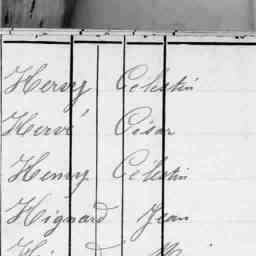 Hervy Célestin
Hervé César
Henry Célestin
Hignard Jean